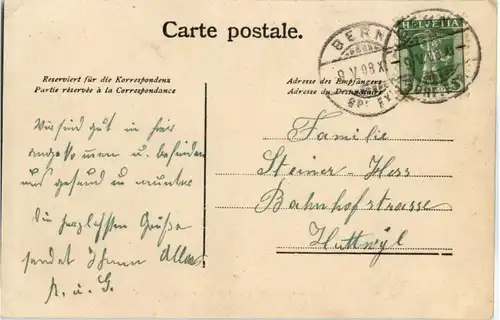 Carte postale.
HELVETIA
BERN
9.V.08.XI
5
Reserviert für die Korrespondenz
Partie réservée à la Correspondance
Adresse des Empfängers
Adresse du Destinataire
Wir sind gut in hier
angekommen u. befinden
uns gesund u munter
Die herzlichsten Grüße
sendet Ihnen Allen
K. u. G.
Familie
Steiner-Hess
Bahnhofstrasse
Huttwyl